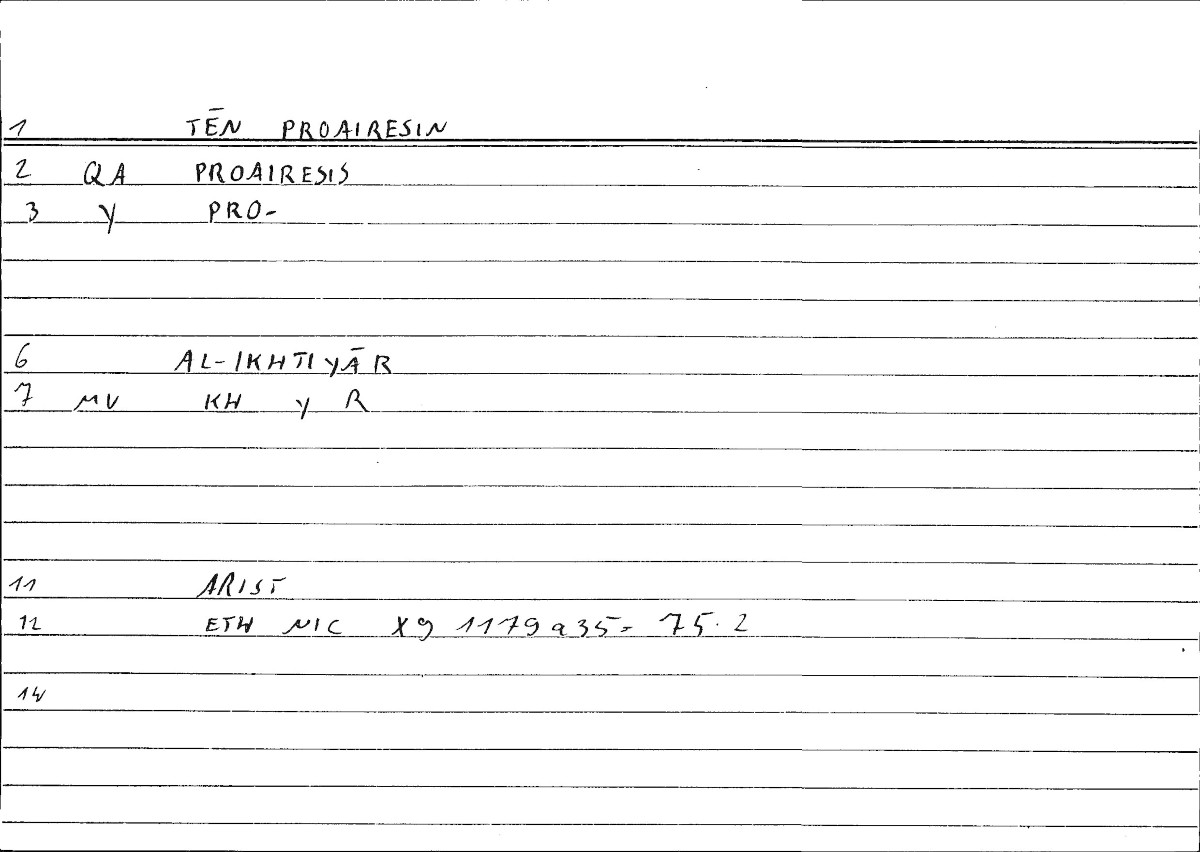 1 TĒN PROAIRESIN
2 QA PROAIRESIS
3 Y PRO-
6 AL-IKHTIYĀR
7 MV KH Y R
11 ARIST
12 ETH NIC X9 1179a35= 75.2
14